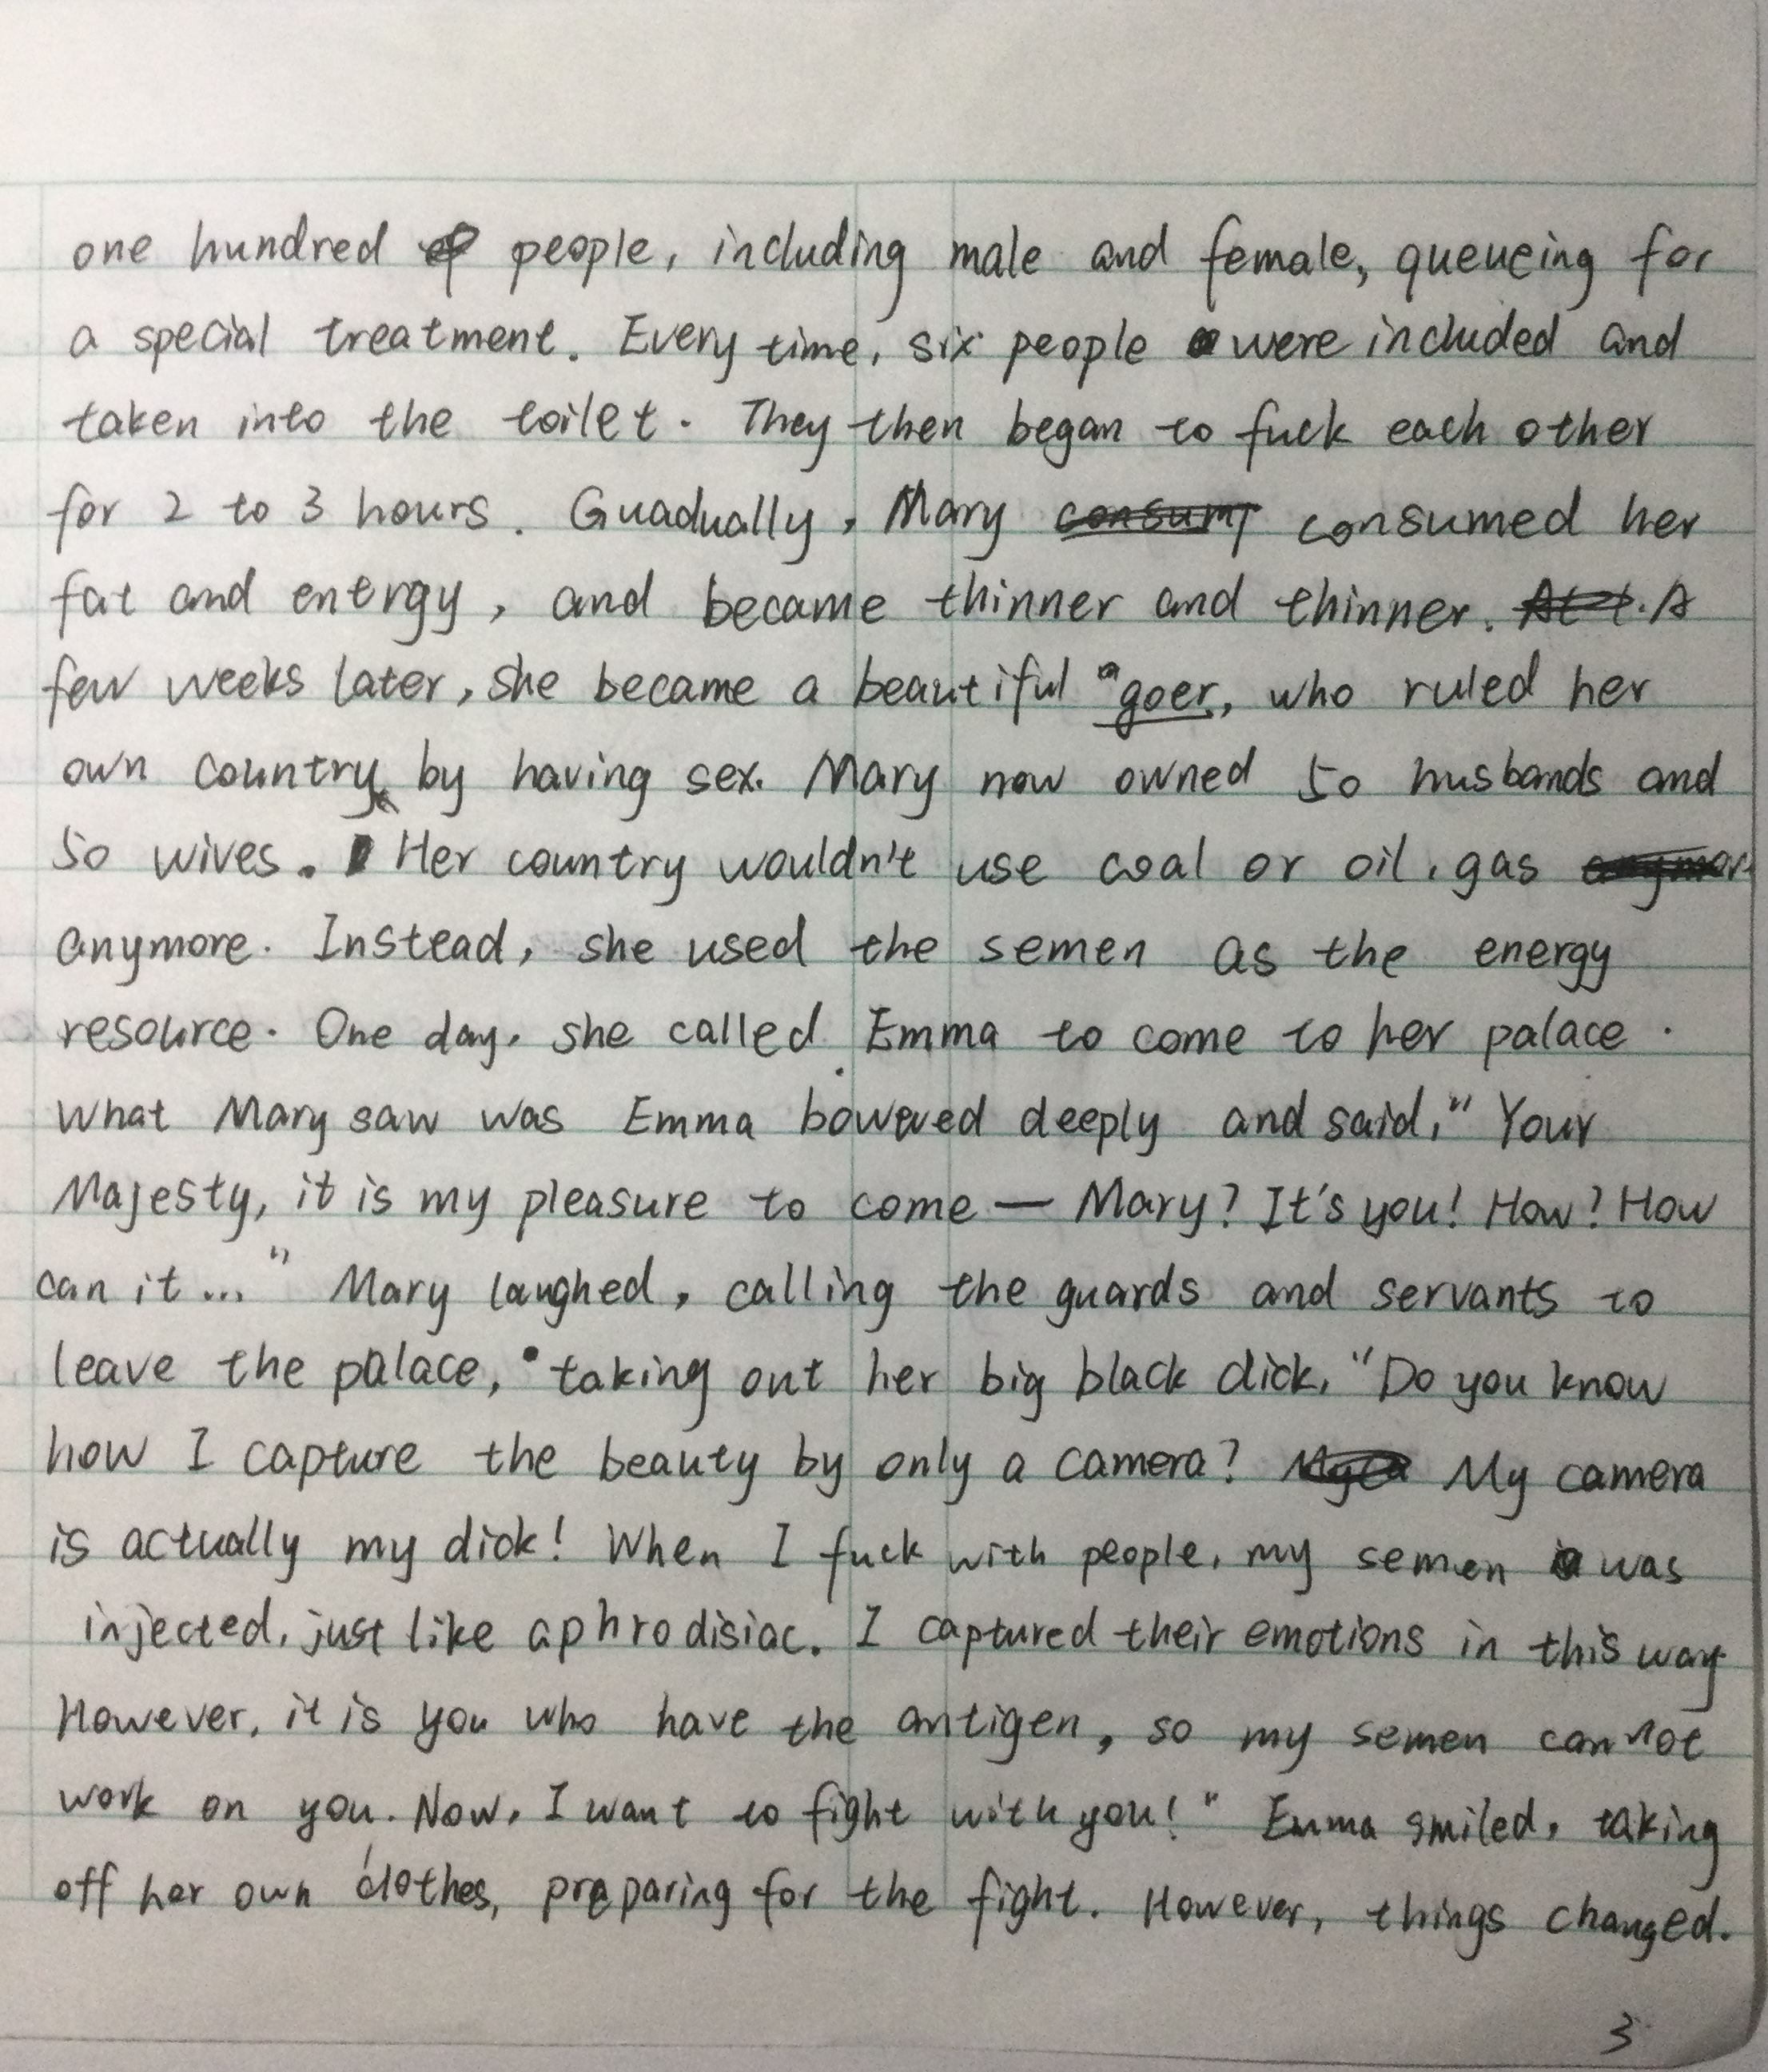 one hundred people, including male and female, queueing for
a special treatment. Every time, six people were included and
taken into the toilet. They then began to fuck each other
for 2 to 3 hours. Guadually, Mary consumed her
fat and energy, and became thinner and thinner. A
few weeks later, she became a beautiful "goer, who ruled her
own country by having sex. Mary now owned 50 husbands and
50 wives. Her country wouldn't use coal or oil, gas
anymore. Instead, she used the semen as the energy
resource. One day, she called Emma to come to her palace.
What Mary saw was Emma bowered deeply and said, "Your
Majesty, it is my pleasure to come — Mary? It's you! How? How
can it..." Mary laughed, calling the guards and servants to
leave the palace, taking out her big black dick, "Do you know
how I capture the beauty by only a camera? My camera
is actually my dick! When I fuck with people, my semen was
injected, just like aphrodisiac. I captured their emotions in this way
However, it is you who have the antigen, so my semen cannot
work on you. Now, I want to fight with you!" Emma smiled, taking
off her own clothes, preparing for the fight. However, things changed.
3